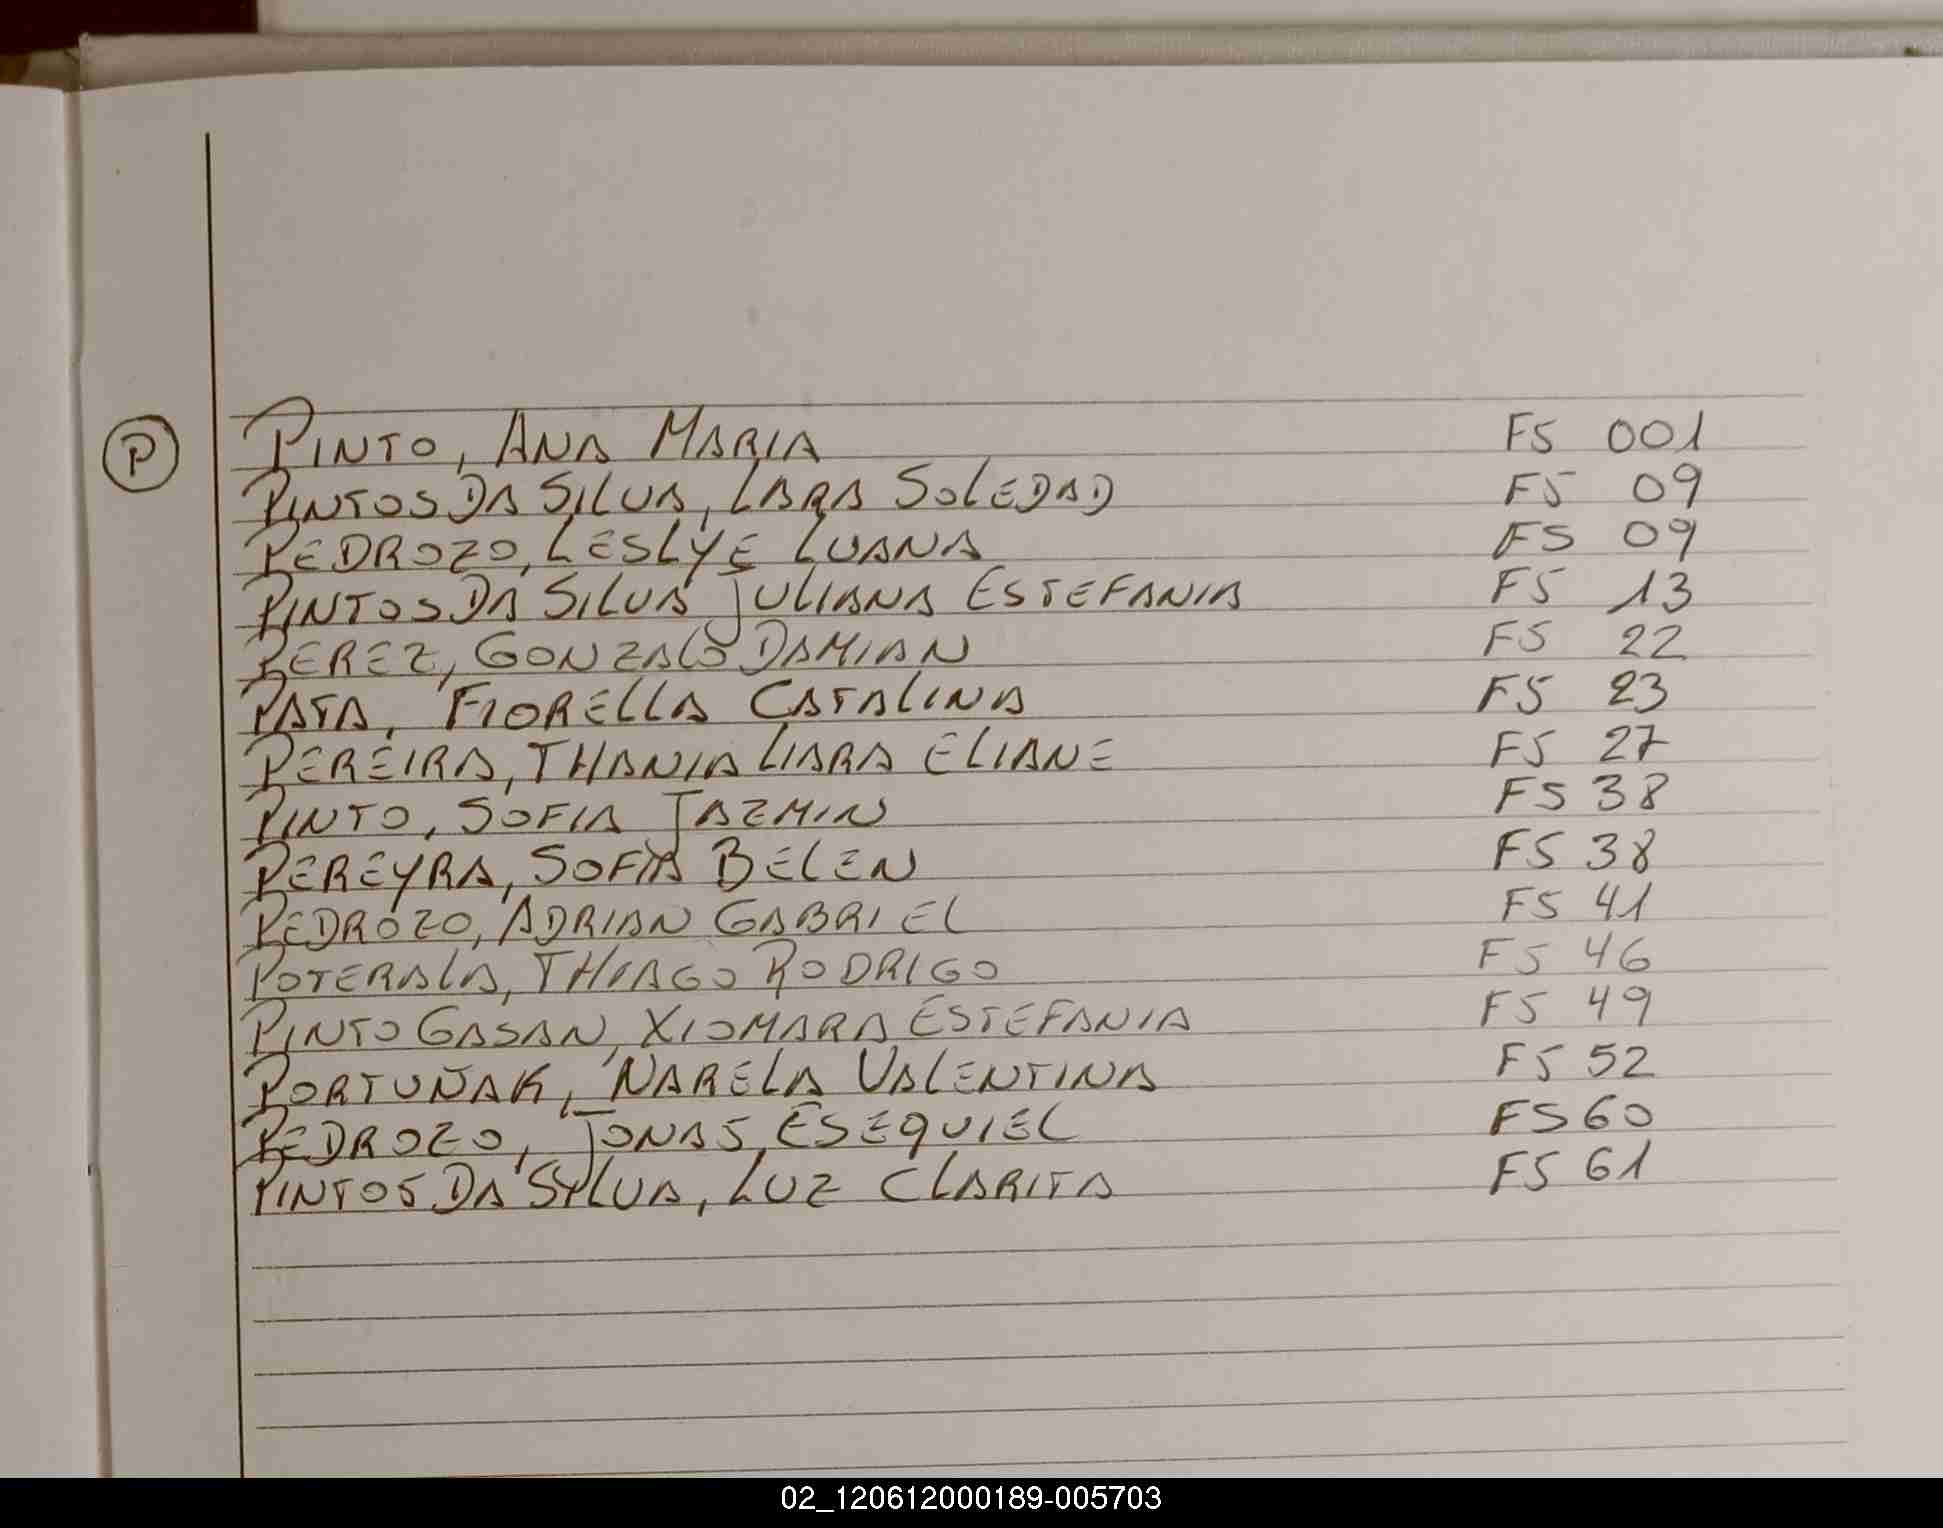 P
PINTO, ANA MARIA FS 001
PINTOS DA SILVA, LARA SOLEDAD FS 09
PEDROZO, LESLYE LUANA FS 09
PINTOS DA SILVA JULIANA ESTEFANIA FS 13
PEREZ, GONZALO DAMIAN FS 22
PATA, FIORELLA CATALINA FS 23
PEREIRA, THANIA LIARA ELIANE FS 27
PINTO, SOFIA JAZMIN FS 38
PEREYRA, SOFIA BELEN FS 38
PEDROZO, ADRIAN GABRIEL FS 41
POTERALA, THIAGO RODRIGO FS 46
PINTO GASAN, XIOMARA ESTEFANIA FS 49
PORTUÑAK, NARELA VALENTINA FS 52
PEDROZO, JONAS ESEQUIEL FS 60
PINTOS DA SYLVA, LUZ CLARITA FS 61
02_120612000189-005703